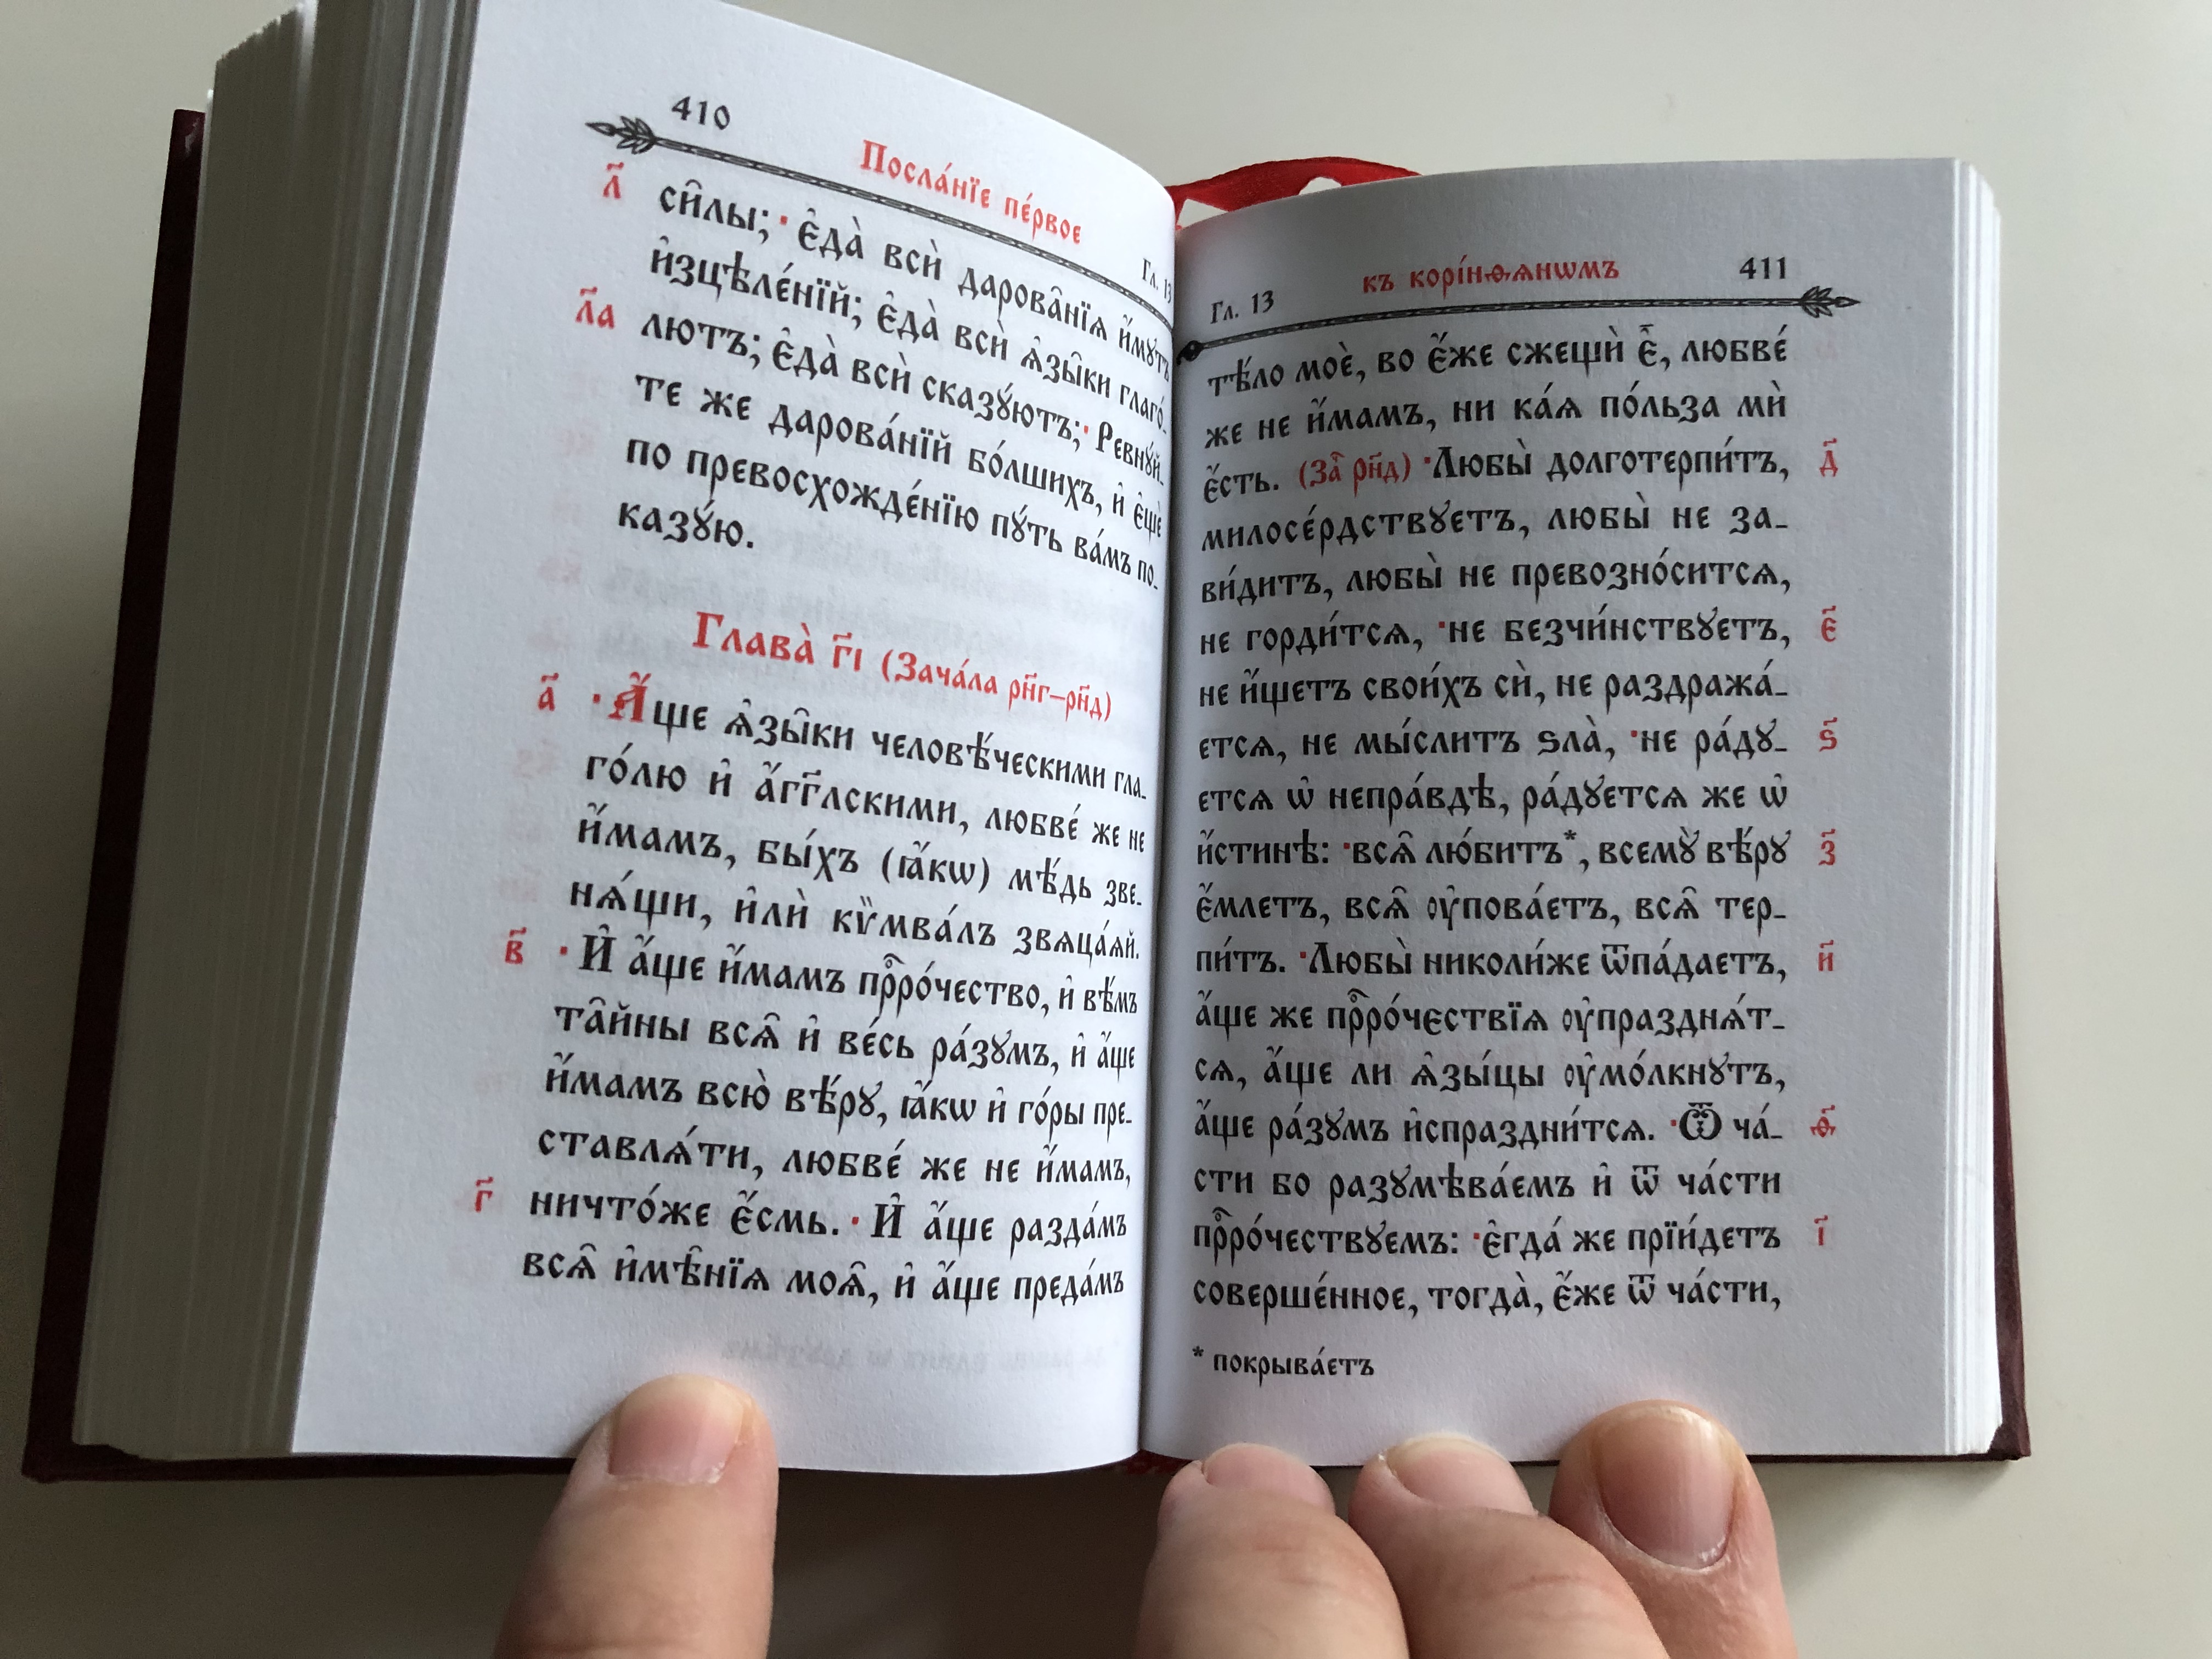 410
Посла́нїе пе́рвое
Гл. 13
л҃ си̑лы; є҆да̀ всѝ дарова̑нїѧ и҆́мꙋтъ
и҆зцѣле́нїй; є҆да̀ всѝ ѧ҆зы̑ки глаго́-
л҃а лютъ; є҆да̀ всѝ сказꙋ́ютъ; Ревнꙋ́й-
те же дарова́нїй бо́лшихъ, и҆ є҆щѐ
по превосхожде́нїю пꙋ́ть ва́мъ по-
казꙋ́ю.
Глава̀ г҃і (Зача́ла рн҃г–рн҃д)
а҃ А҆́ще ѧ҆зы̑ки человѣ́ческими гла-
го́лю и҆ а҆́гг҃лскими, любве́ же не
и҆́мамъ, бы́хъ (ꙗ҆́кѡ) мѣ́дь зве-
нѧ́щи, и҆лѝ кѷмва́лъ звѧца́ѧй.
в҃ И҆ а҆́ще и҆́мамъ прⷪ҇ро́чество, и҆ вѣ́мъ
та̑йны всѧ̑ и҆ ве́сь ра́зꙋмъ, и҆ а҆́ще
и҆́мамъ всю̀ вѣ́рꙋ, ꙗ҆́кѡ и҆ го́ры пре-
ставлѧ́ти, любве́ же не и҆́мамъ,
г҃ ничто́же є҆́смь. И҆ а҆́ще разда́мъ
всѧ̑ и҆мѣ̑нїѧ моѧ̑, и҆ а҆́ще преда́мъ
Гл. 13
къ корі́нѳѧнѡмъ
411
тѣ́ло моѐ, во є҆́же сжещѝ є҆̀, любве́
же не и҆́мамъ, ни ка́ѧ по́льза мѝ
є҆́сть. (За҄ рн҃д) Любы̀ долготерпи́тъ, д҃
милосе́рдствꙋетъ, любы̀ не за-
ви́дитъ, любы̀ не превозно́ситсѧ,
не горди́тсѧ, не безчи́нствꙋетъ, є҃
не и҆́щетъ свои́хъ сѝ, не раздража́-
етсѧ, не мы́слитъ ѕла̀, не ра́дꙋ- ѕ҃
етсѧ ѡ҆ непра́вдѣ, ра́дꙋетсѧ же ѡ҆
и҆́стинѣ: всѧ̑ лю́битъ*, всемꙋ̀ вѣ́рꙋ з҃
є҆́млетъ, всѧ̑ ᲂу҆пова́етъ, всѧ̑ тер-
пи́тъ. Любы̀ николи́же ѿпа́даетъ, и҃
а҆́ще же прⷪ҇ро́чествїѧ ᲂу҆празднѧ́т-
сѧ, а҆́ще ли ѧ҆зы́цы ᲂу҆мо́лкнꙋтъ,
а҆́ще ра́зꙋмъ и҆спраздни́тсѧ. Ѿ ча́- ѳ҃
сти бо разꙋмѣва́емъ и҆ ѿ ча́сти
прⷪ҇ро́чествꙋемъ: є҆гда́ же прїи́детъ і҃
соверше́нное, тогда̀, є҆́же ѿ ча́сти,
* покрыва́етъ